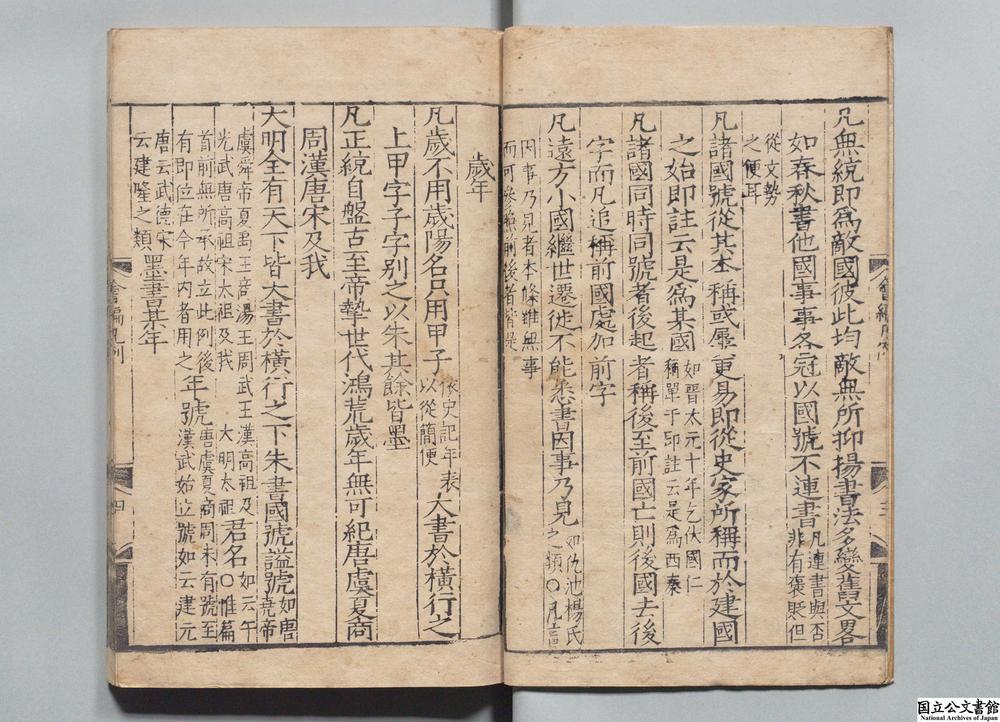 凡無統即爲敵國彼此均敵無所抑揚書法多變舊文畧
如春秋書他國事事各冠以國號不連書凡連書與否非有褒貶但
從文勢之便耳
凡諸國號從其本稱或屢更易即從史家所稱而於建國
之始即註云是爲某國如晋太元十年乞伏國仁稱單于即註云是爲西秦
凡諸國同時同號者後起者稱後至前國亡則後國去後
字而凡追稱前國處加前字
凡遠方小國繼世遷徙不能悉書因事乃見如仇池楊氏之類○凡言
因事乃見者本條雖無事而可參照前後者皆是
歲年
凡歲不用歲陽名只用甲子依史記年表以從簡便大書於橫行之
上甲字子字別之以朱其餘皆墨
凡正統自盤古至帝摯世代鴻荒歲年無可紀唐虞夏商
周漢唐宋及我
大明全有天下皆大書於橫行之下朱書國號謚號如唐堯帝
虞舜帝夏禹王商湯王周武王漢高祖及光武唐高祖宋太祖及我 大明太祖君名如云午○惟篇
首前無所承故立此例後有即位在今年内者用之年號唐虞夏商周未有號至漢武始立號如云建元
唐云武德宋云建隆之類墨書某年
會編凡例
四
三
国立公文書館
National Archives of Japan